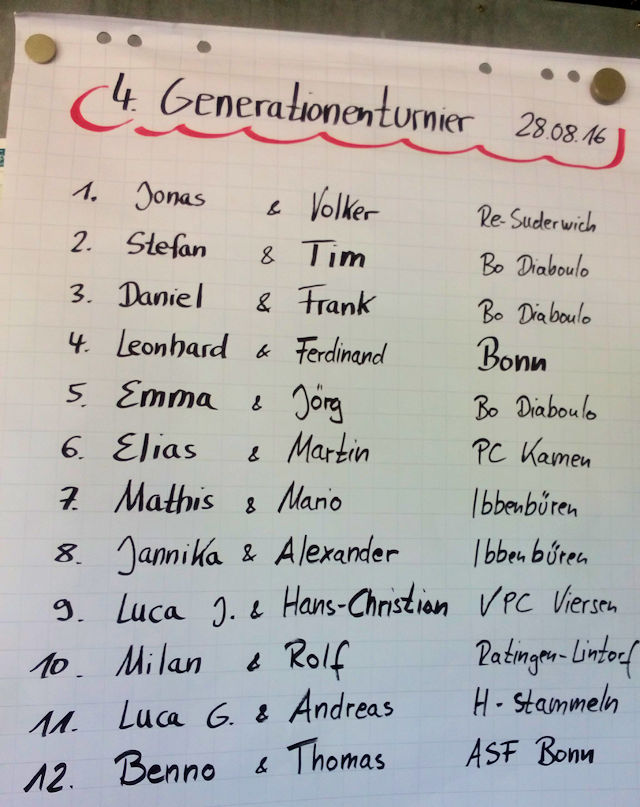 4. Generationenturnier 28.08.16
1. Jonas & Volker Re-Suderwich
2. Stefan & Tim Bo Diaboulo
3. Daniel & Frank Bo Diaboulo
4. Leonhard & Ferdinand Bonn
5. Emma & Jörg Bo Diaboulo
6. Elias & Martin PC Kamen
7. Mathis & Mario Ibbenbüren
8. Jannika & Alexander Ibbenbüren
9. Luca J. & Hans-Christian VPC Viersen
10. Milan & Rolf Ratingen-Lintorf
11. Luca G. & Andreas H-Stammeln
12. Benno & Thomas ASF Bonn